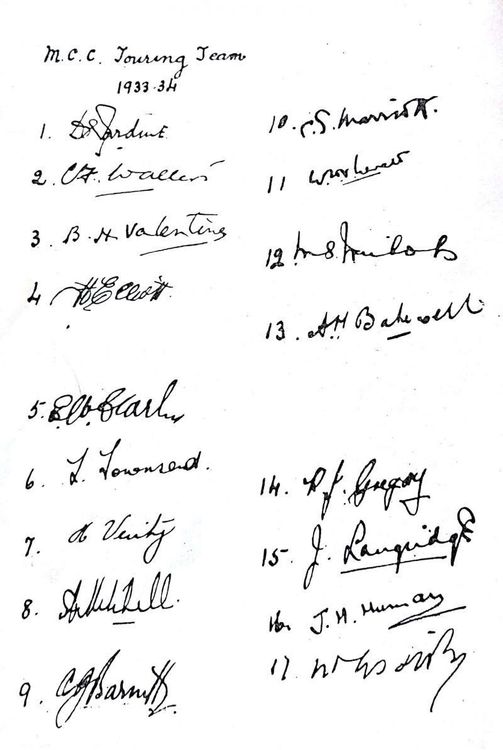 M.C.C. Touring Team
1933-34
1. D R Jardine
2. C F Walters
3. B. H Valentine
4 H Elliott.
5. E.W. Clark
6. L. Townsend.
7. H Verity
8. A. Mitchell.
9. C J Barnett
10. C. S. Marriott.
11 W H V Levett
12 M S Nichols
13. A H Bakewell
14. R J. Gregory
15. J. Langridge
16. J. H. Human
17.